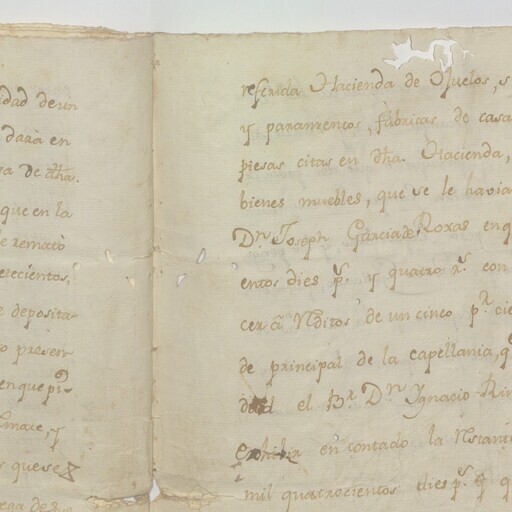 idad de un
dará en
sa de dha.
que en la
se remató
setecientos,
e deposita-
o presen-
en que pi-
lmare, y
s que se
ega de su
referida Hacienda de Ojuelos, s
y paramentos, fábricas de casa
piesas citas en dha. Hacienda,
bienes muebles, que se le havia
Dn. Joseph Garcia de Roxas en q
entos dies ps. y quatro rs. con
cer á Rditos de un cinco pr. cie
de principal de la capellania, q
dad el Br. Dn Ygnacio Rin
exhibir en contado la Restante
mil quatrocientos dies ps. q q